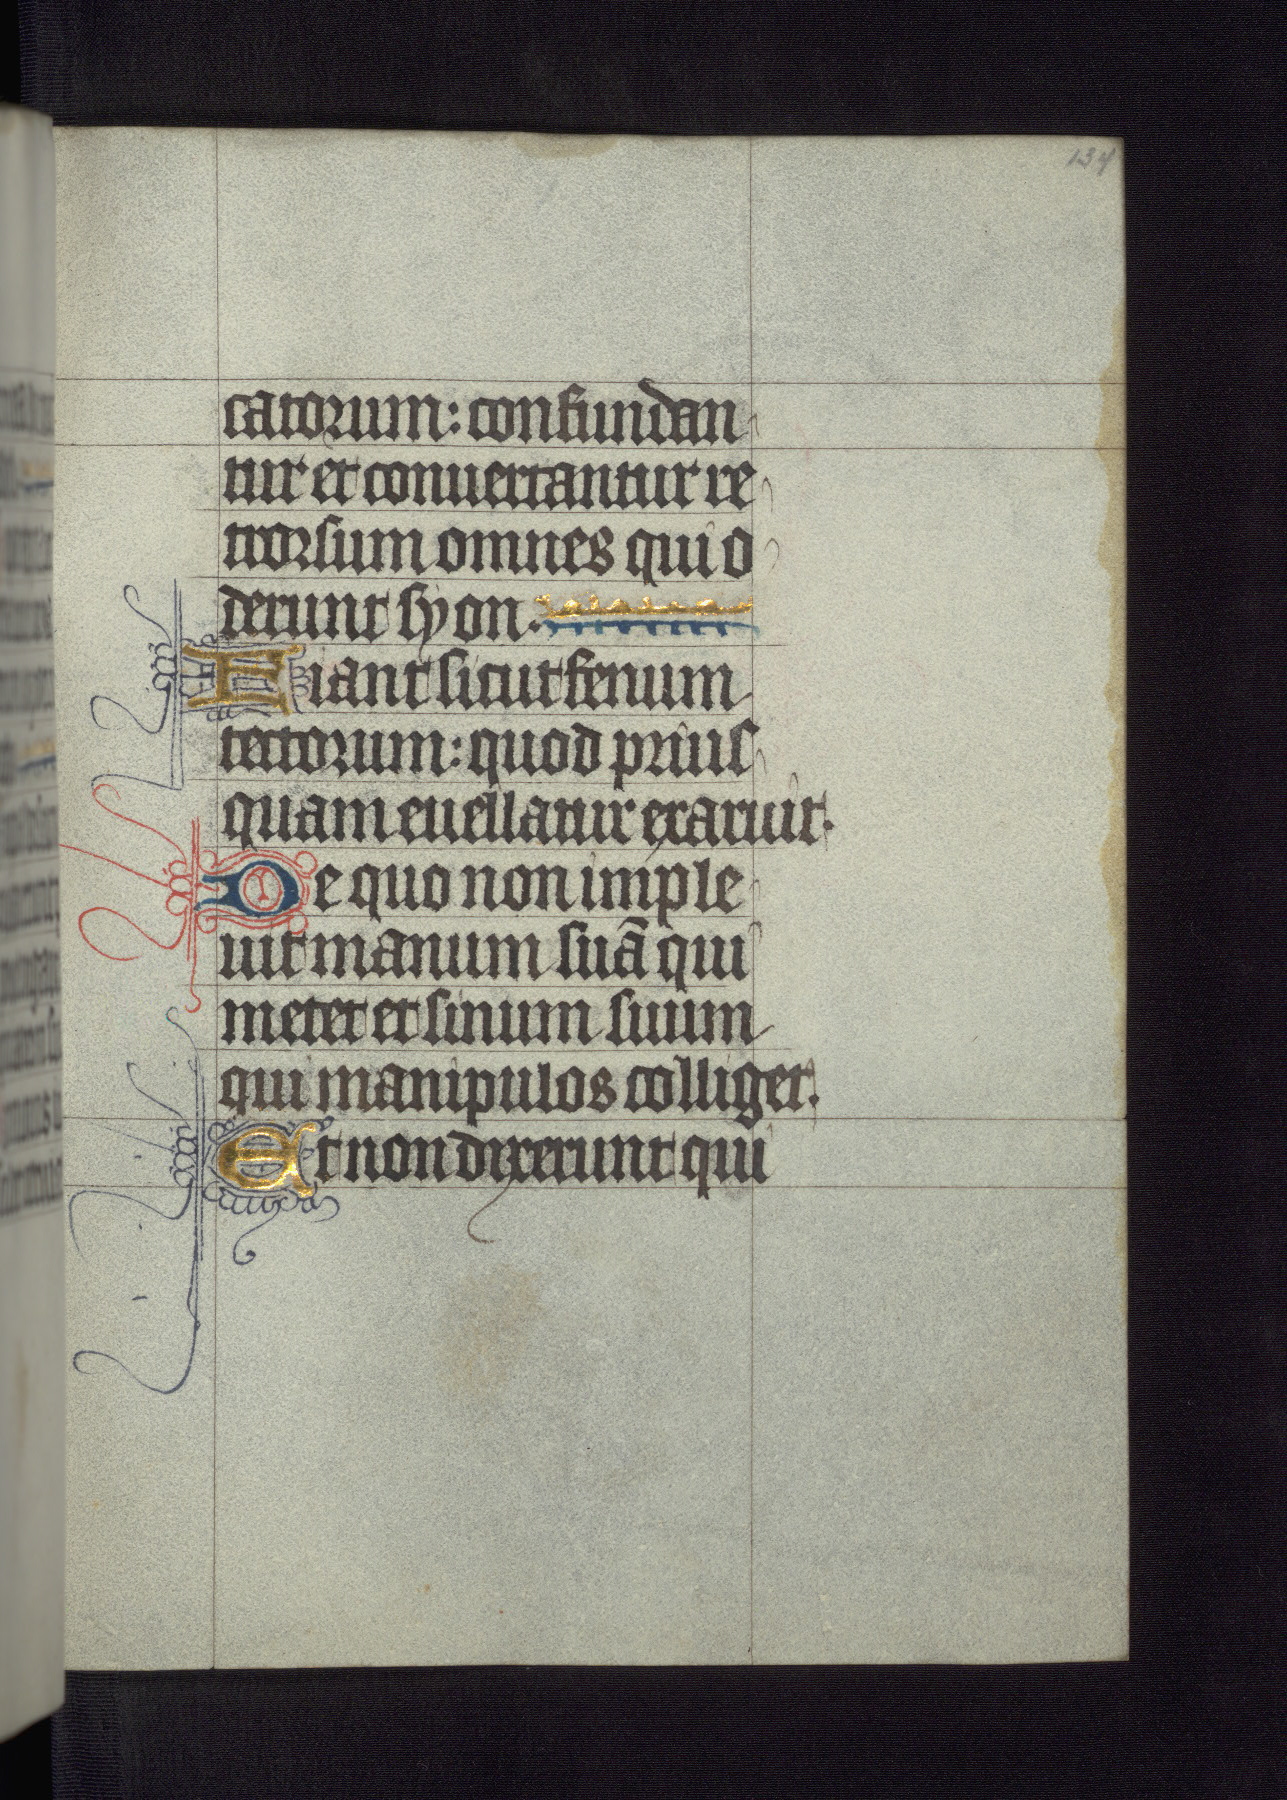 134
catorum: confundan
tur et conuertantur re
trorsum omnes qui o
derunt syon.
Fiant sicut fenum
tectorum: quod prius
quam euellatur exaruit.
De quo non imple
uit manum suā qui
metet et sinum suum
qui manipulos colliget.
Et non dixerunt qui